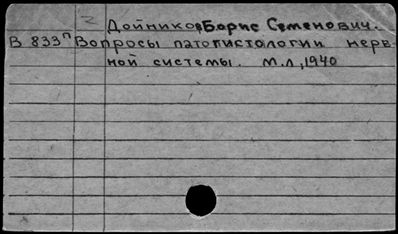 Дойников Борис Семенович.
В 833п Вопросы патогистологии нерв-
ной системы. М.Л, 1940